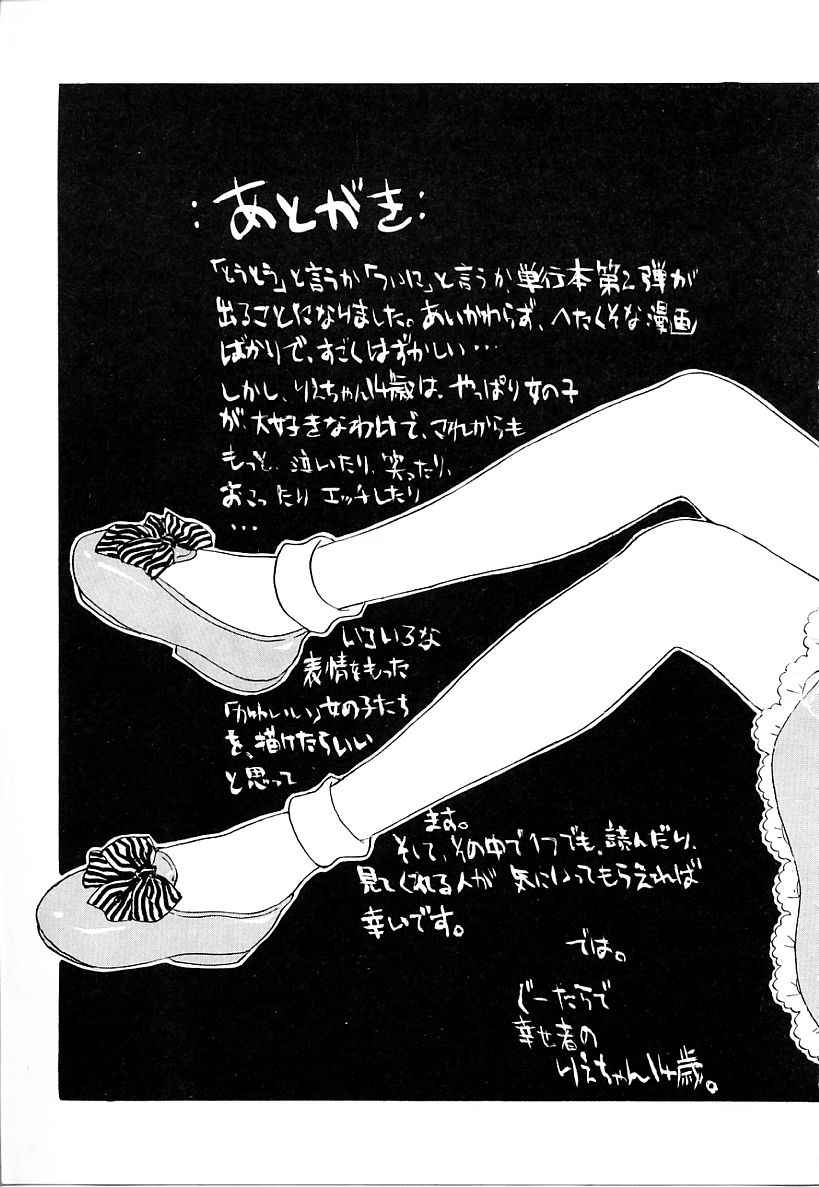 ：あとがき：
「とうとう」と言うか「ついに」と言うか、単行本第2弾が
出ることになりました。あいかわらず、へたくそな漫画
ばかりで、すごくはずかしい…
しかし、りえちゃん14歳は、やっぱり女の子
が、大好きなわけで、これからも
もっと、泣いたり、笑ったり、
おこったり エッチしたり
…
いろいろな
表情をもった
「かわいい」女の子たち
を、描けたらいい
と思って
ます。
そして、その中で1つでも、読んだり、
見てくれる人が 気にいってもらえれば
幸いです。
では。
ぐーたらで
幸せ者の
りえちゃん14歳。